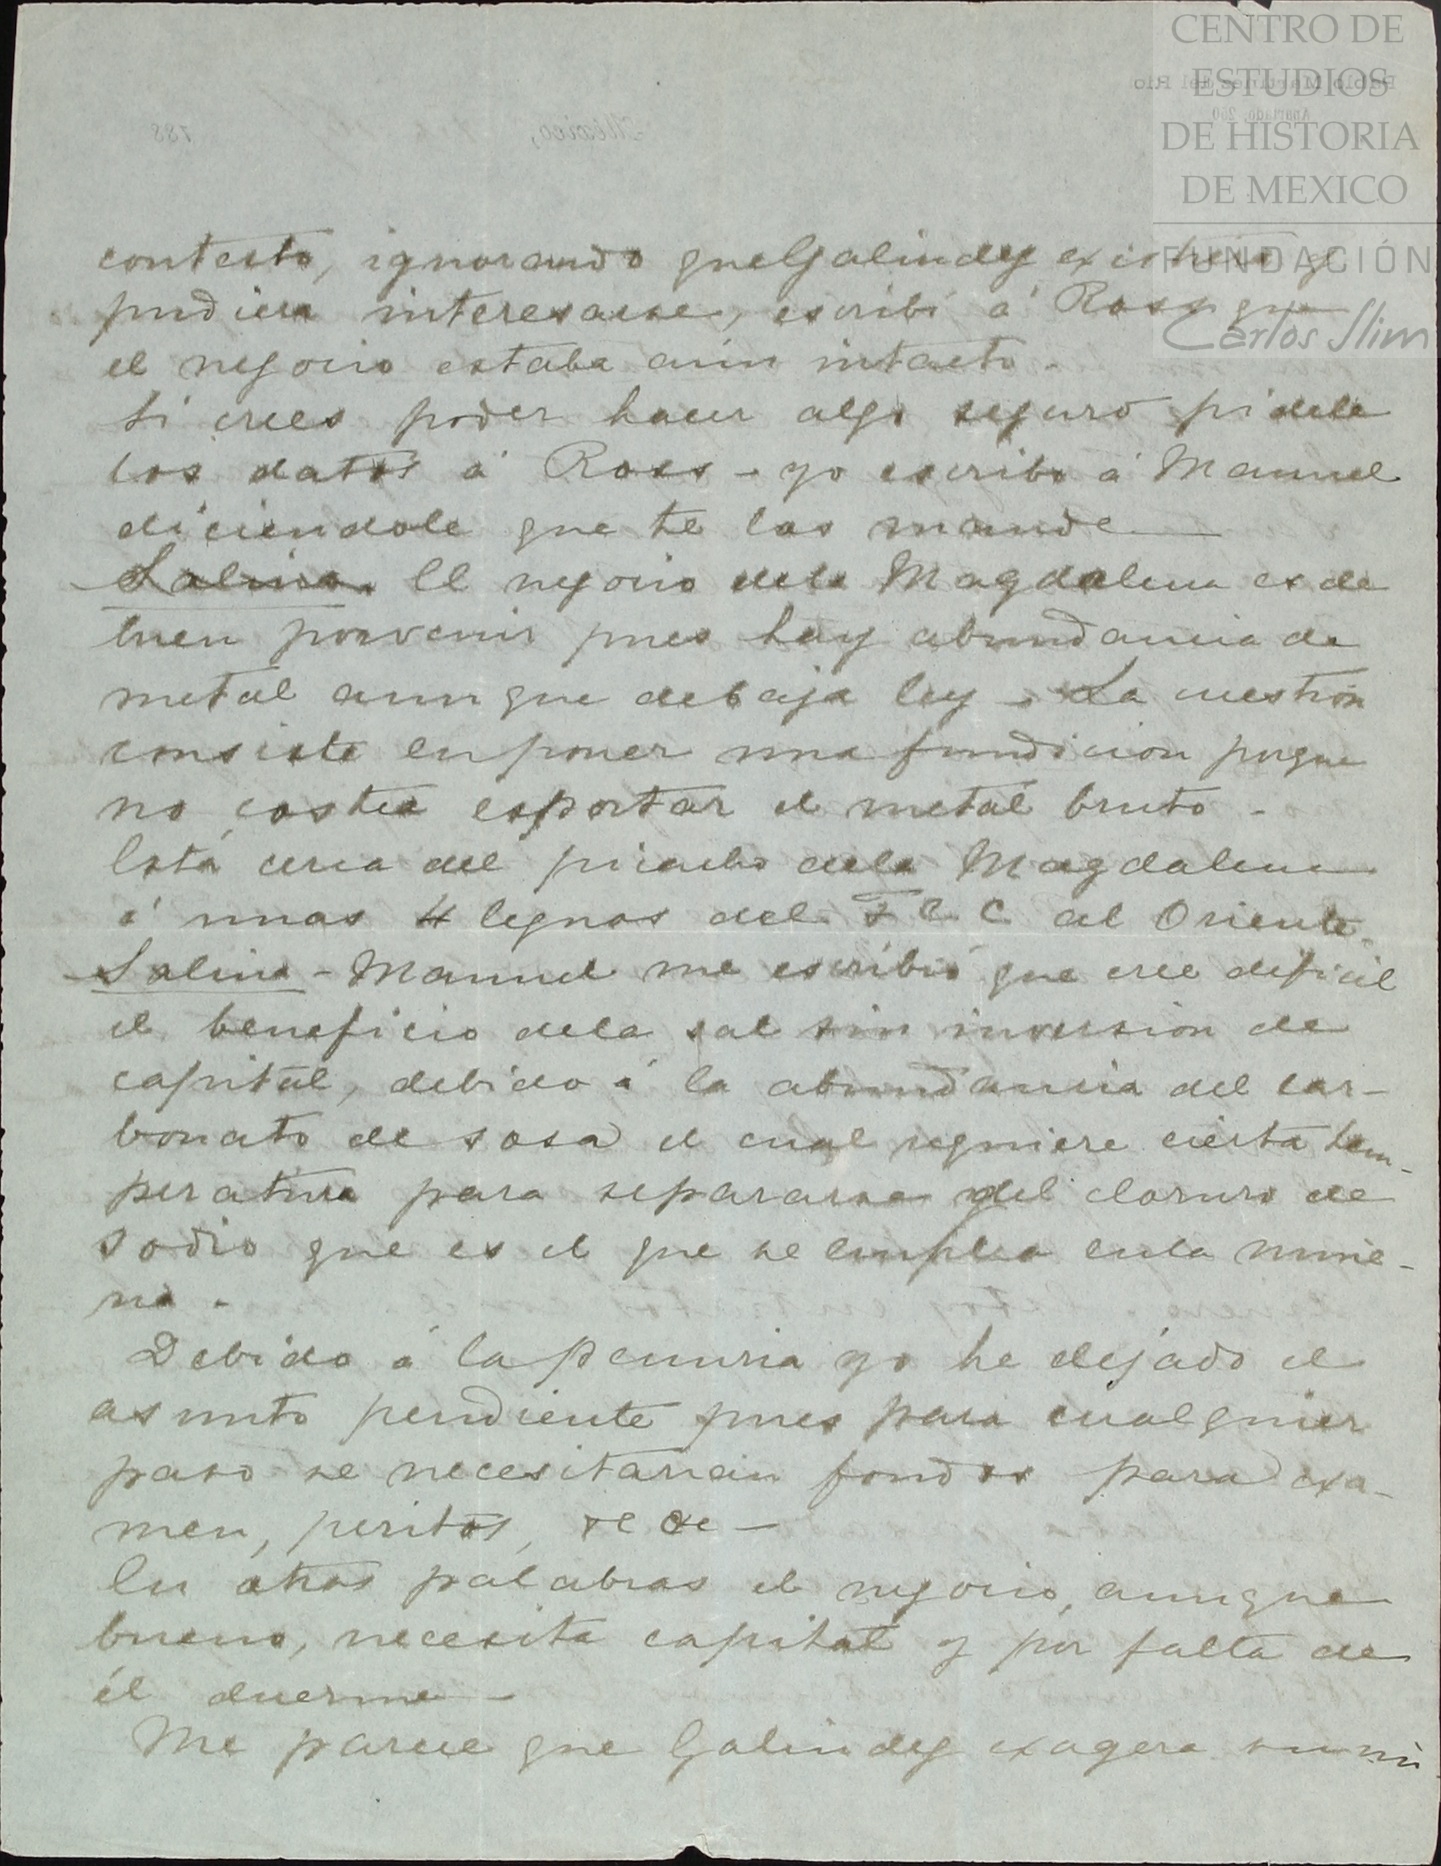 CENTRO DE
ESTUDIOS
DE HISTORIA
DE MEXICO
FUNDACIÓN
Carlos Slim
Pablo Martinez del Rio
Apartado, 250
México, 188
contesto, ignorando que Galindez existiera y
pudiera interesarse, escribí á Ross que
el negocio estaba aún intacto -
Si crees poder hacer algo seguro pidele
los datos á Ross - yo escribo á Manuel
diciendole que te los mande
Salina. El negocio dela Magdalena es de
buen porvenir pues hay abundancia de
metal aunque debaja ley - La cuestion
consiste en poner una fundicion porque
no costea esportar el metal bruto -
Está cerca del picacho dela Magdalena
á unas 4 leguas del F C C al Oriente.
Salina - Manuel me escribió que cree dificil
el beneficio dela sal sin inversion de
capital, debido á la abundancia del car-
bonato de sosa el cual requiere cierta tem-
peratura para separarse del cloruro de
sodio que es el que se emplea enla mine-
ria -
Debido á la penuria yo he dejado el
asunto pendiente pues para cualquier
paso se necesitarian fondos para exa-
men, peritos, &c &c -
En otras palabras el negocio, aunque
bueno, necesita capital y por falta de
él duerme -
Me parece que Galindez exagera su